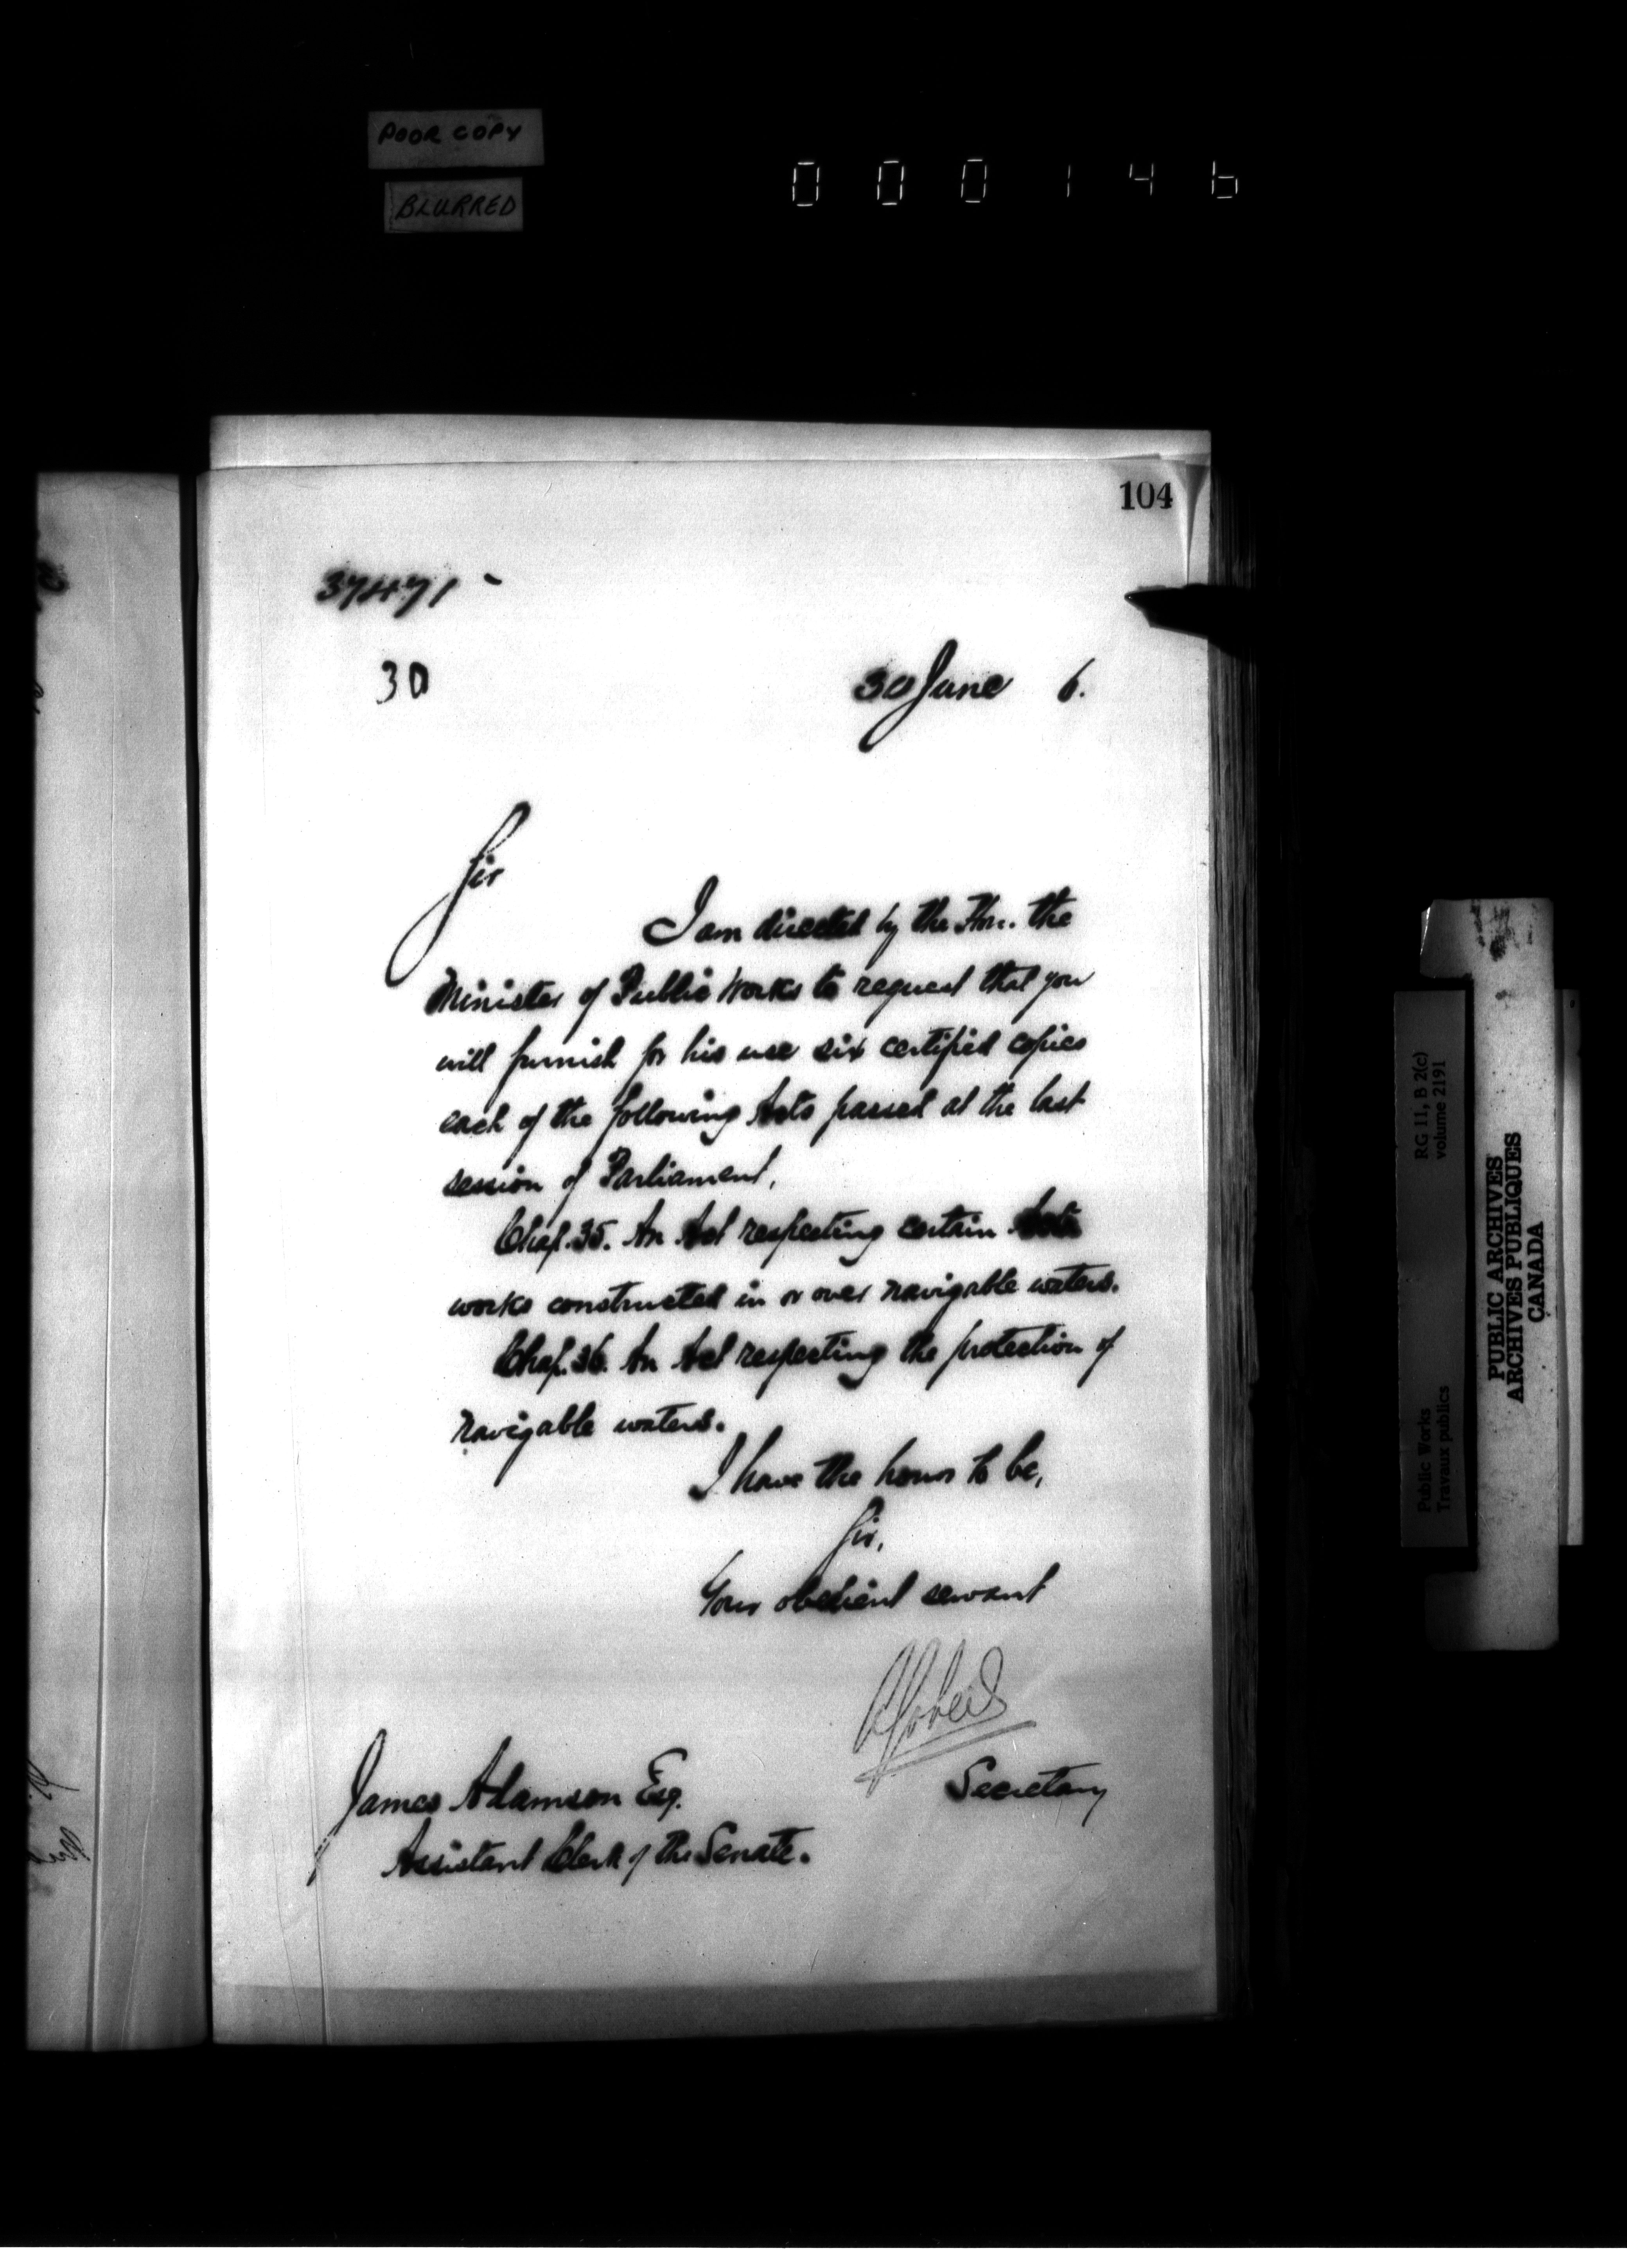 POOR COPY
BLURRED
000146
104
37471
30
30 June 6.
Sir
I am directed by the Hon. the
Minister of Public Works to request that you
will furnish for his use six certified copies
each of the following Acts passed at the last
session of Parliament,
Chap. 35. An Act respecting certain
works constructed in or over navigable waters.
Chap. 36. An Act respecting the protection of
navigable waters.
I have the honor to be,
Sir,
Your obedient servant
Secretary
James Adamson Esq.
Assistant Clerk of the Senate.
Public Works
Travaux publics
RG 11, B 2(c)
volume 2191
PUBLIC ARCHIVES
ARCHIVES PUBLIQUES
CANADA